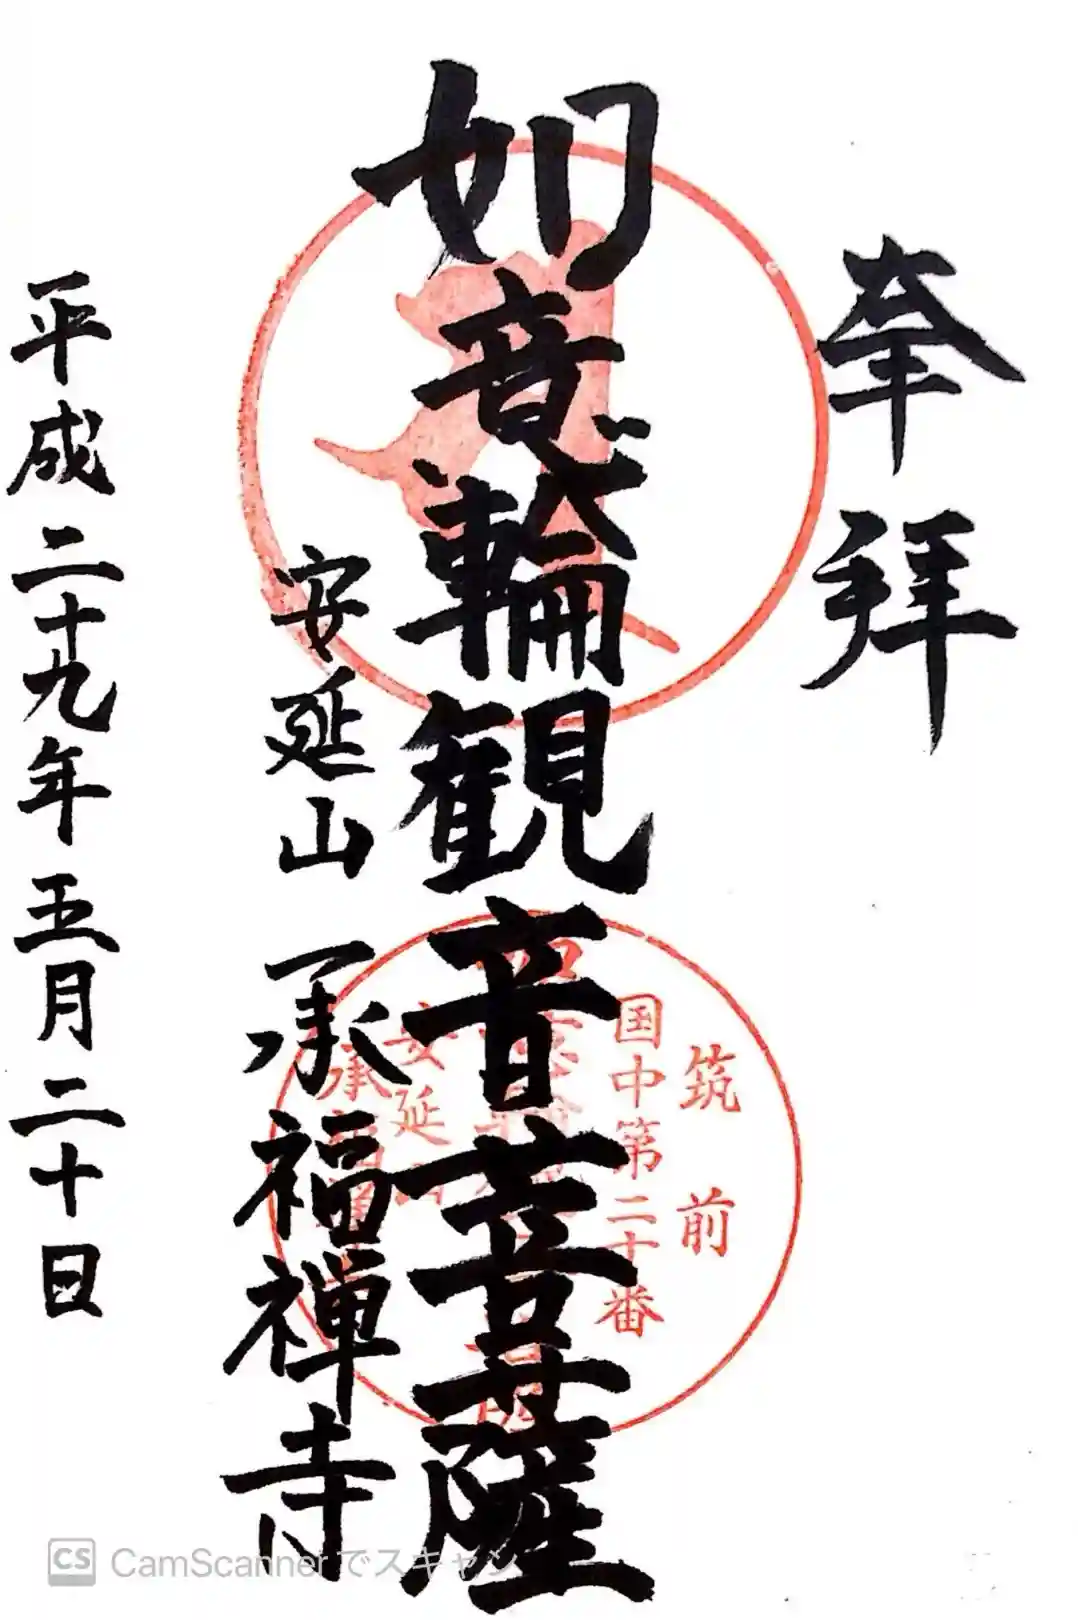 奉拝
如意輪観音菩薩
安延山 承福禅寺
平成二十九年五月二十日
筑前
国中第二十番
安延山
承福禅寺
CS CamScannerでスキャン